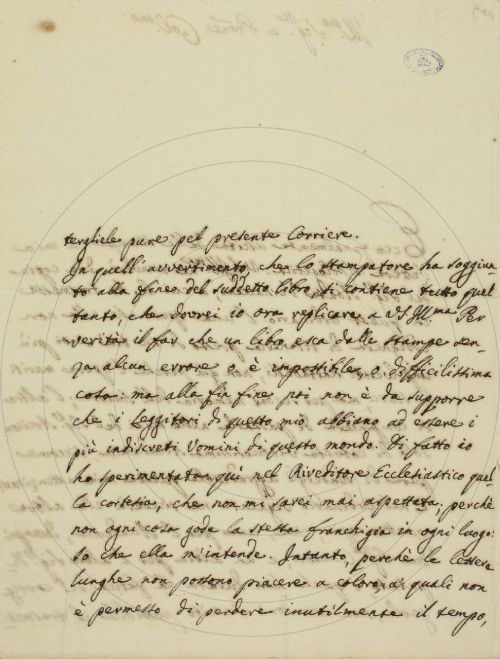 tergliele pure pel presente Corriere.
In quell'avvertimento, che lo stampatore ha soggiun
to alla fine del suddetto libro, si contiene tutto quel
tanto, che dovrei io ora replicare a V.S. Ill.ma Per
verità il far che un libro esca dalle stampe sen-
za alcun errore o è impossibile, o difficilissima
cosa: ma alla fin fine poi non è da supporre
che i Leggitori di questo mio abbiano ad essere i
più indiscreti Uomini di questo mondo. Di fatto io
ho sperimentata quì nel Riveditore Ecclesiastico quel
la cortesia, che non mi sarei mai aspettata; perchè
non ogni cosa gode la stessa franchigia in ogni luogo:
So che ella m'intende. Intanto, perchè le lettere
lunghe non possono piacere a coloro, a' quali non
è permesso di perdere inutilmente il tempo,